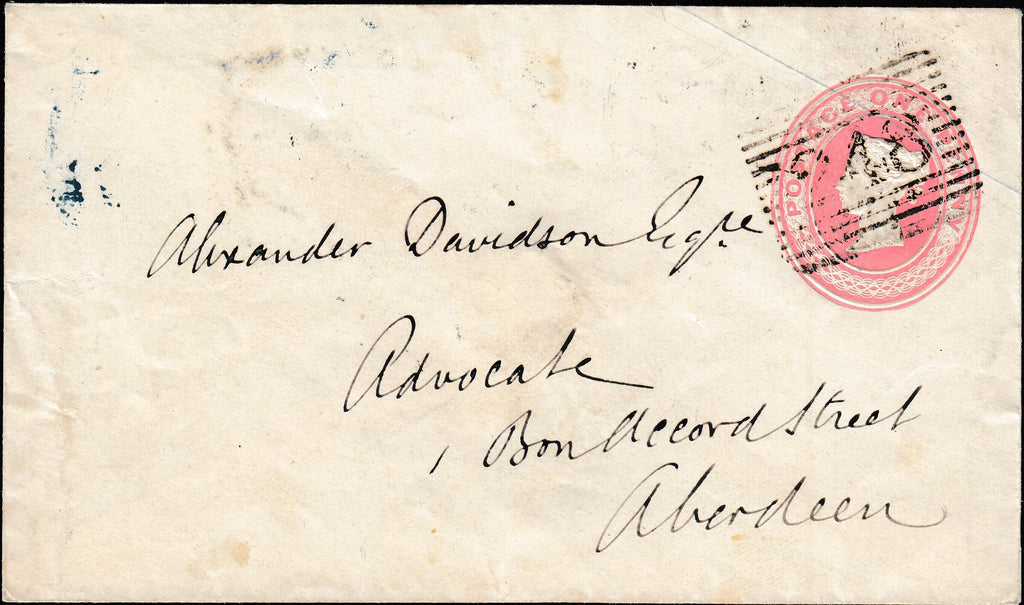 POSTAGE ONE PENNY
Alexander Davidson Esqre
Advocate
1 Bon Accord Street
Aberdeen